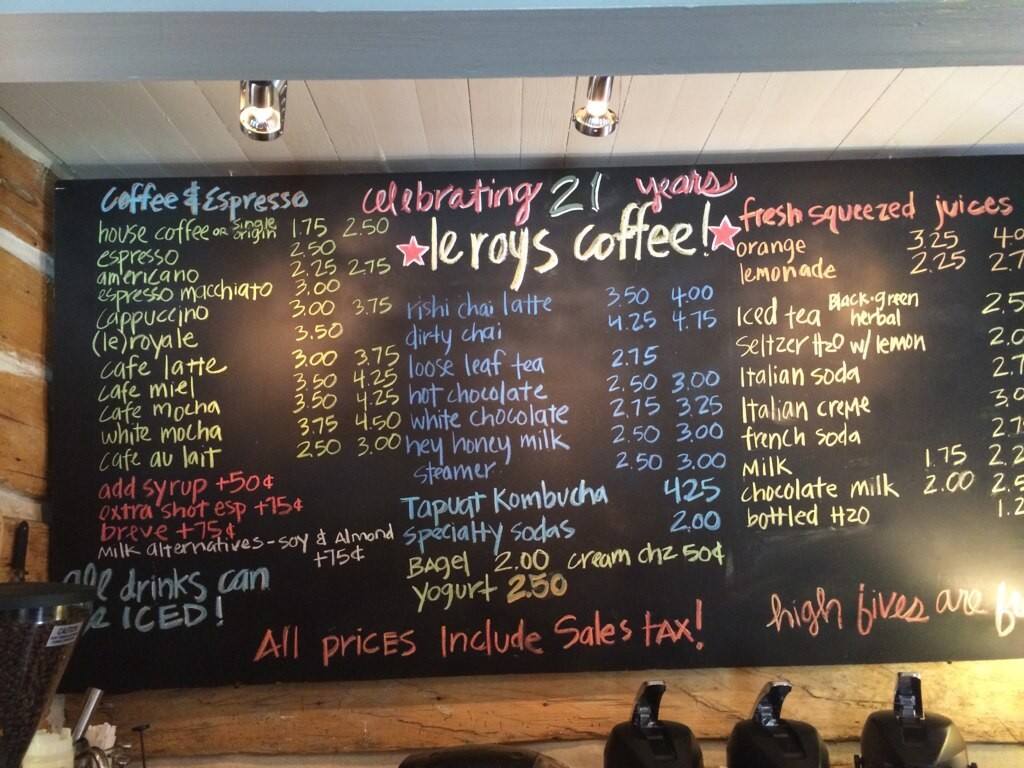 Coffee & Espresso
house coffee OR Single Origin 1.75 2.50
espresso 2.50
americano 2.25 2.75
espresso macchiato 3.00
cappuccino 3.00 3.75
(le) royale 3.50
cafe latte 3.00 3.75
cafe miel 3.50 4.25
cafe mocha 3.50 4.25
white mocha 3.75 4.50
cafe au lait 2.50 3.00
add syrup +50¢
extra shot esp +75¢
breve +75¢
Milk alternatives - soy & Almond
+75¢
drinks can
ICED!
celebrating 21 years
le roys coffee!
rishi chai latte 3.50 4.00
dirty chai 4.25 4.75
loose leaf tea 2.75
hot chocolate 2.50 3.00
white chocolate 2.75 3.25
hey honey milk 2.50 3.00
steamer 2.50 3.00
Tapuat Kombucha 4.25
specialty sodas 2.00
Bagel 2.00 cream chz 50¢
Yogurt 2.50
fresh squeezed juices
orange 3.25
lemonade 2.25
Iced tea Black·green herbal
seltzer H2O w/ lemon
Italian soda
Italian creme
french soda
Milk 1.75
chocolate milk 2.00
bottled H2O
high fives are
All prices Include Sales tax!